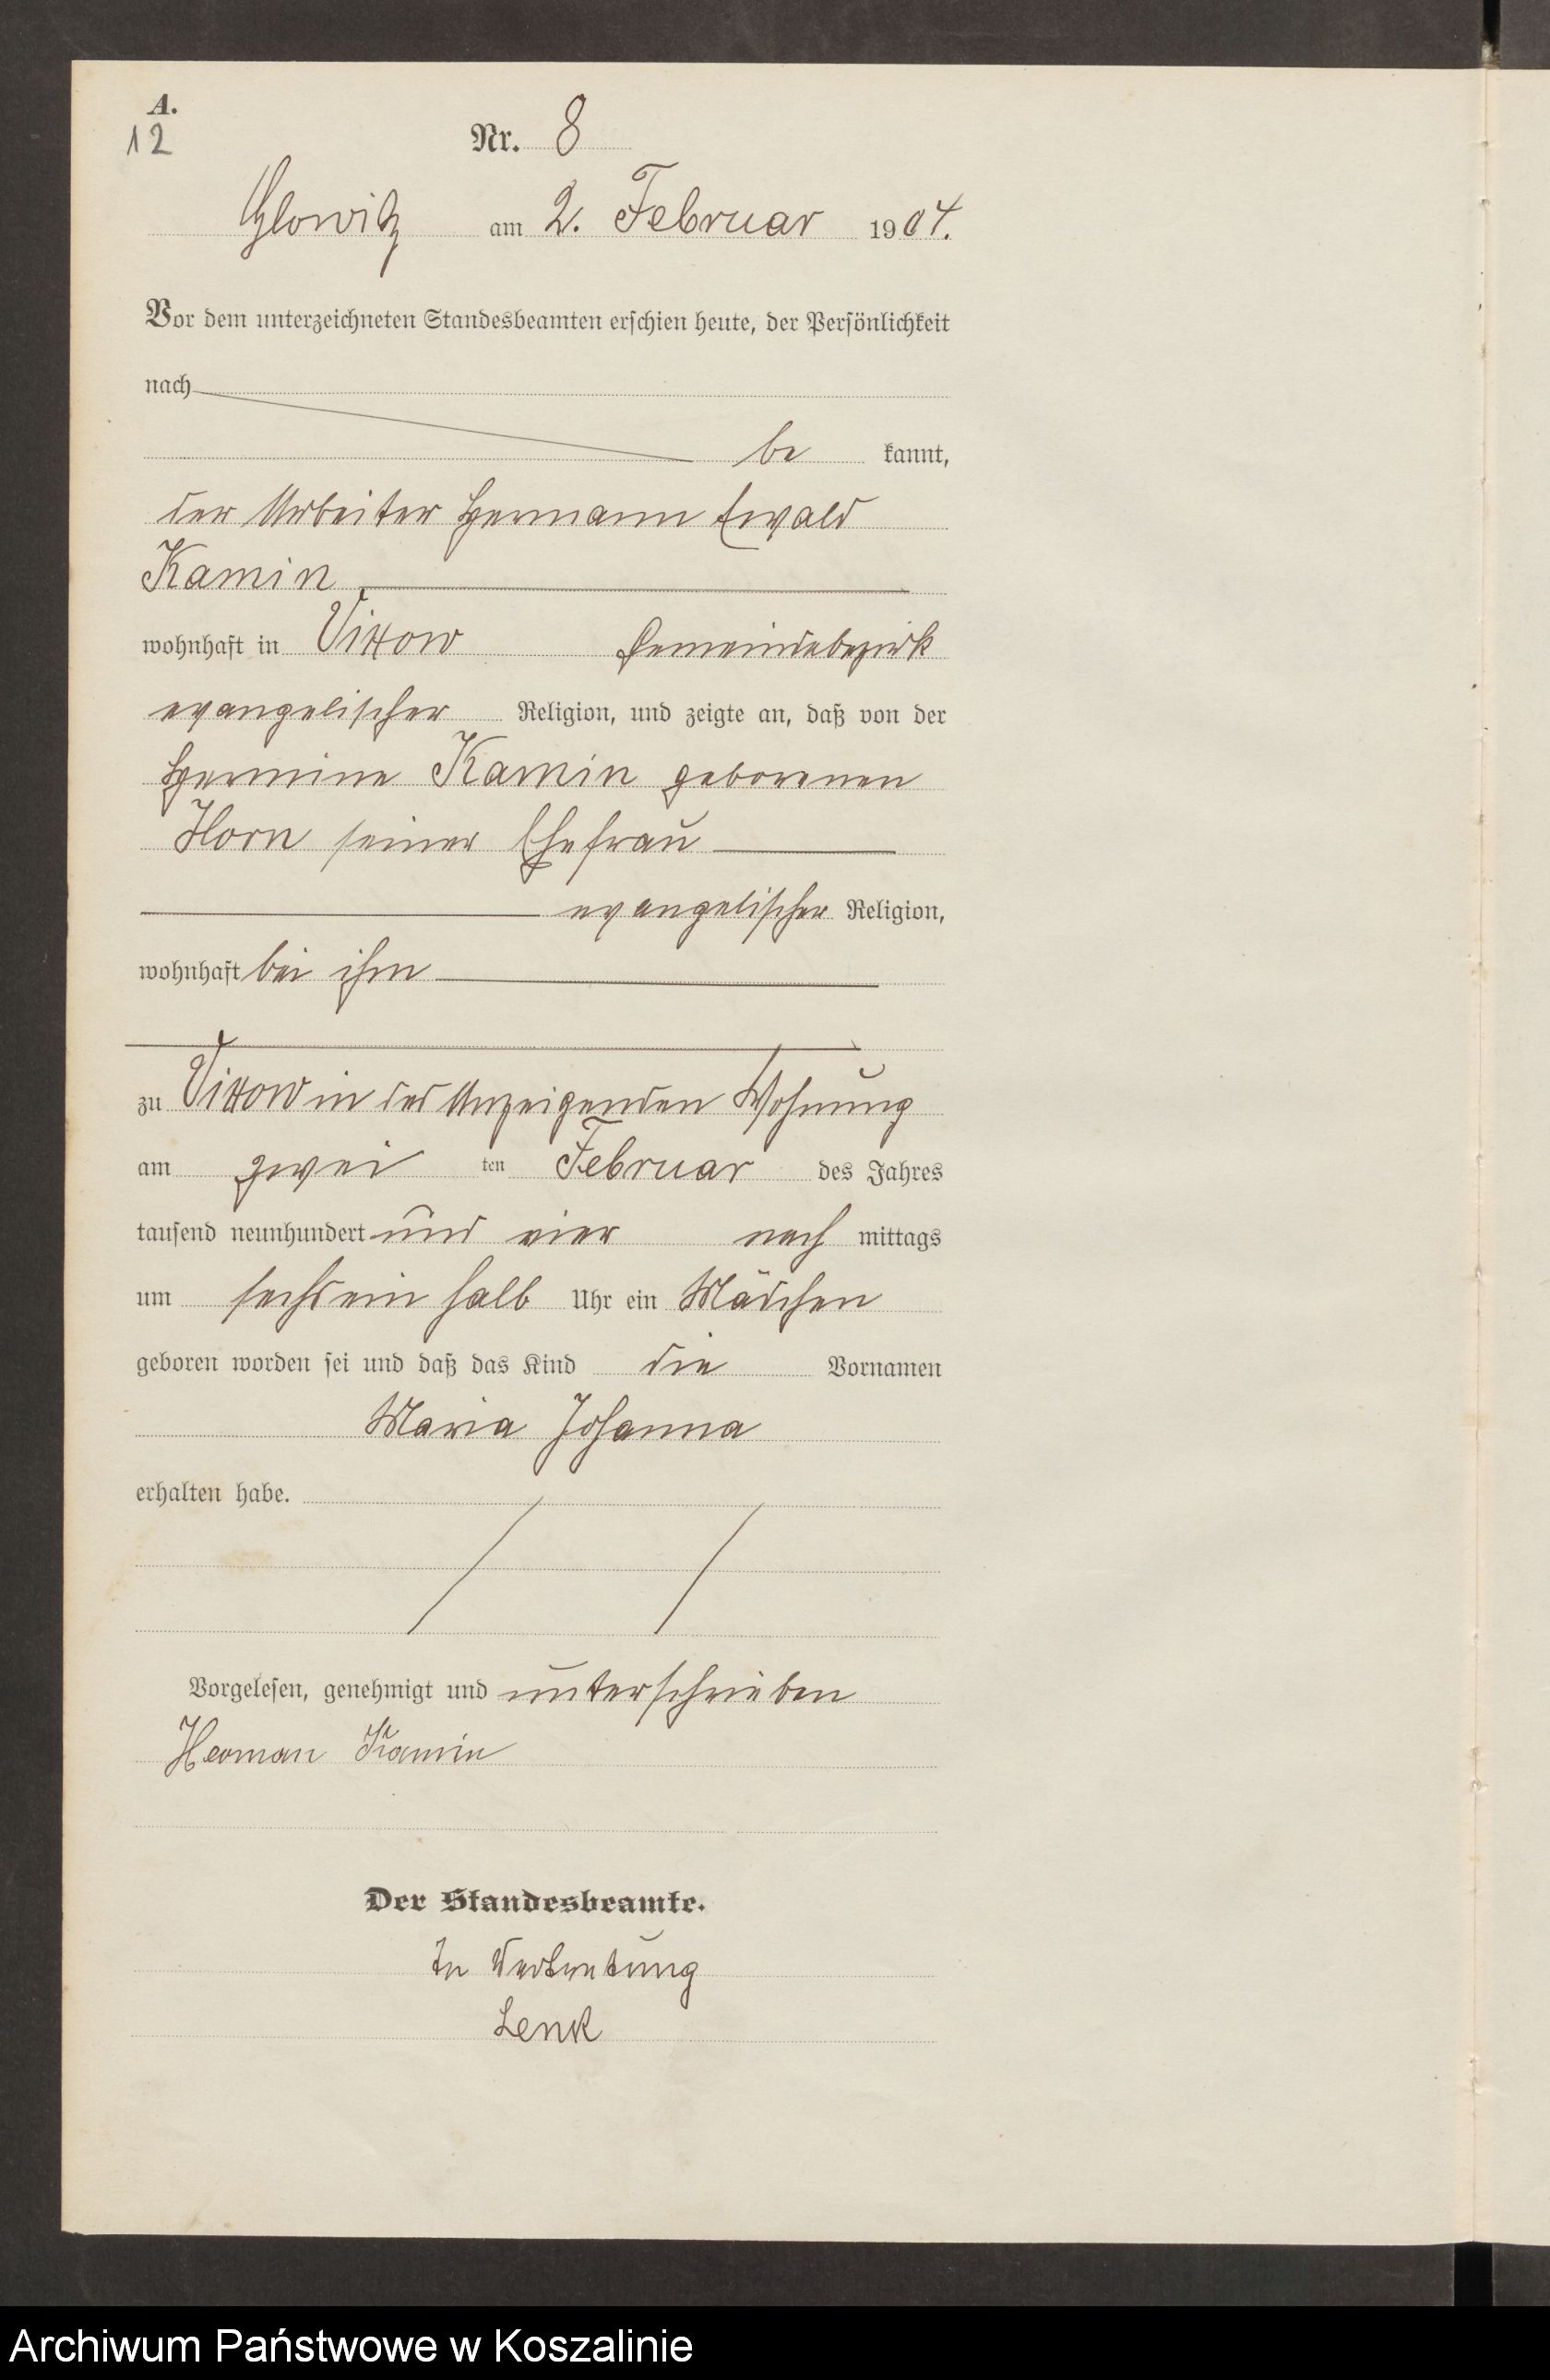 A.
12
Nr. 8
Glowitz am 2. Februar 1904.
Vor dem unterzeichneten Standesbeamten erschien heute, der Persönlichkeit
nach
be kannt,
der Arbeiter Hermann Ewald
Kamin
wohnhaft in Vixow Gemeindebezirk
evangelischer Religion, und zeigte an, daß von der
Hermine Kamin geborenen
Horn seiner Ehefrau
evangelischer Religion,
wohnhaft bei ihm
zu Vixow in des Anzeigenden Wohnung
am zwei ten Februar des Jahres
tausend neunhundert und vier nach mittags
um sechs ein halb Uhr ein Mädchen
geboren worden sei und daß das Kind die Vornamen
Maria Johanna
erhalten habe.
Vorgelesen, genehmigt und unterschrieben
Herman Kamin
Der Standesbeamte.
In Vertretung
Lenk
Archiwum Państwowe w Koszalinie